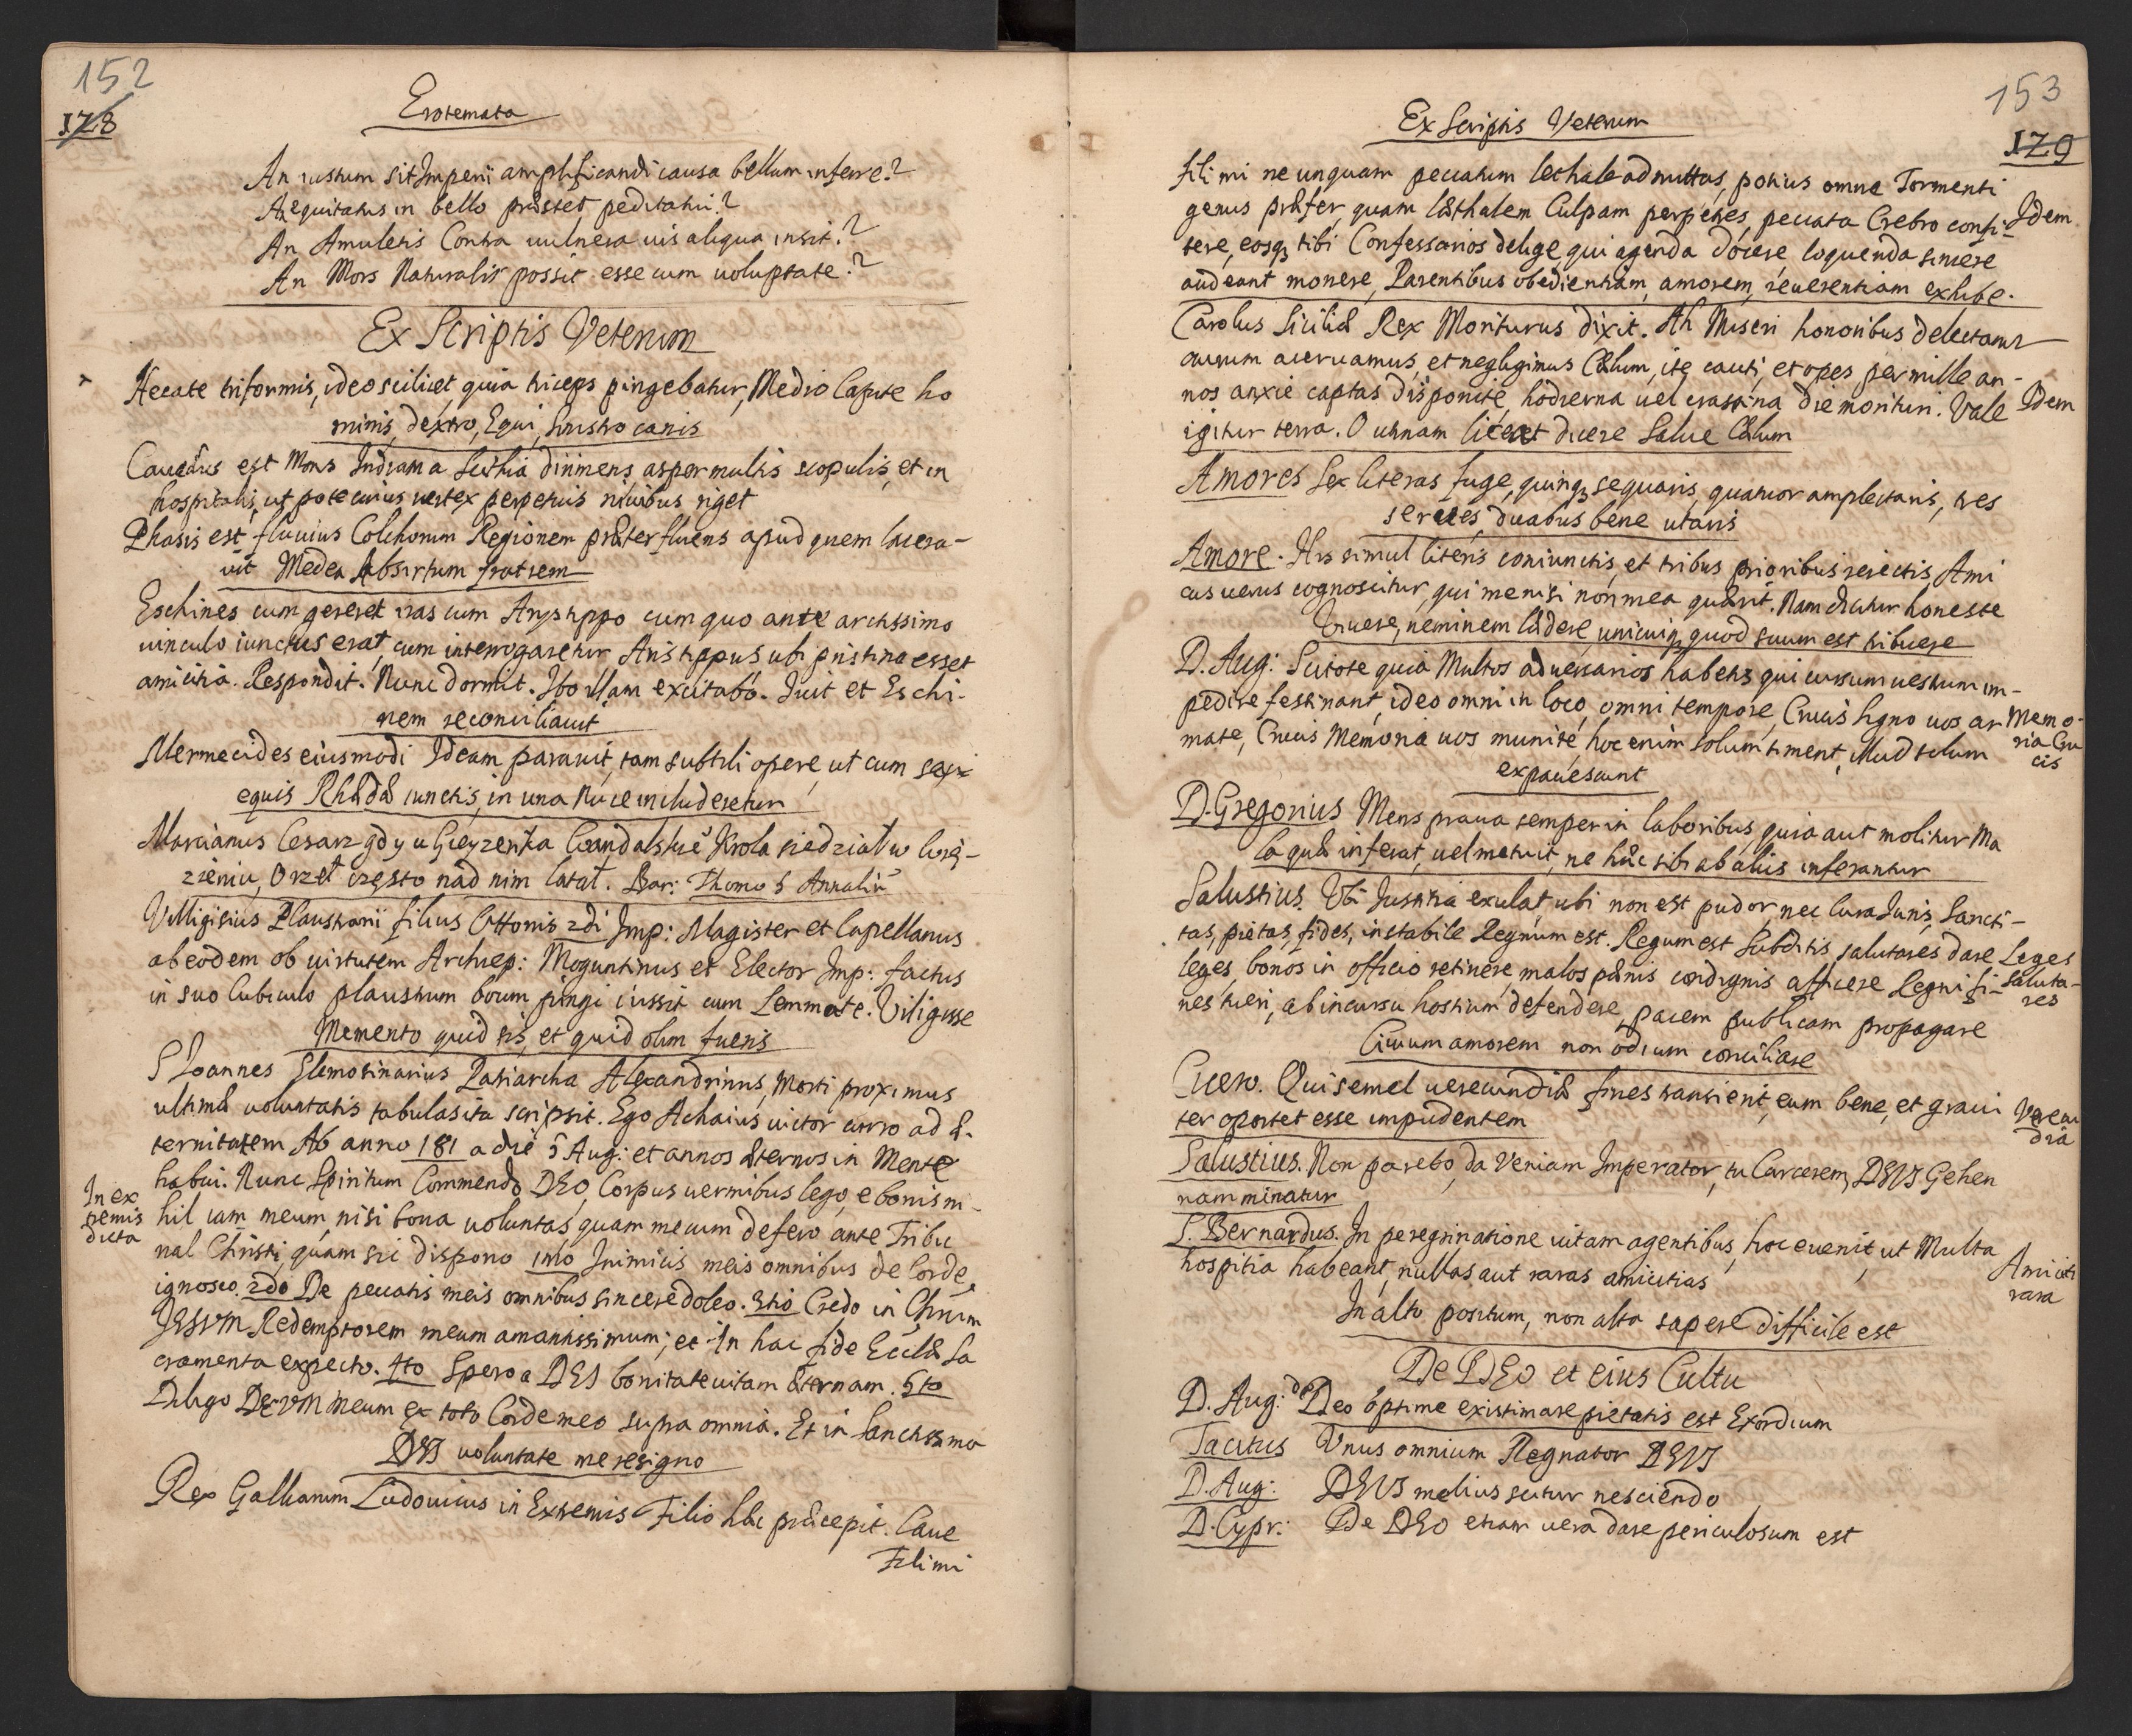 152
128
Erotemata
An iustum sit Imperii amplificandi causa bellum inferre?
An equitatus in bello præstet peditatui?
An Amuletis Contra uulnera uis aliqua insit?
An Mors Naturalis possit esse cum uoluptate?
Ex Scriptis Veterum
Hecate triformis, ideo scilicet, quia triceps pingebatur, Medio Capite ho
minis, dextro, Equi, sinistro canis
Caucasus est Mons Indiam a Scithia dirimens, asper multis scopulis, et in
hospitalis, ut pote cuius uertex perpetuis niuibus riget
Phasis est fluuius Colchorum Regionem præterfluens apud quem lacera-
uit Medea Absirtum fratrem
Eschines cum gereret iras cum Arystippo cum quo ante arctissimo
uinculo iunctus erat, cum interrogaretur Aristippus ubi pristina esset
amicitia. Respondit. Nunc dormit. Ibo illam excitabo. Iuit et Eschi-
nem reconciliauit
Mermecides eiusmodi Ideam parauit, tam subtili opere, ut cum sex
equis Rhædæ iunctis, in una Nuce includeretur
Marcianus Cesarz gdy u Gieyzeryka Wandalskie Krola siedział w wię-
zieniu, Orzeł często nad nim latał. Bar: Thomo 5 Annaliu
Villigisius Plaustrarii filius Ottonis 2di Imp: Magister et Capellanus
ab eodem ob uirtutem Archiep: Moguntinus et Elector Imp: factus
in suo Cubiculo plaustrum boum pingi iussit cum Lemmate. Viligisse
Memento quid sis, et quid olim fueris
S Ioannes Elemosinarius Patriarcha Alexandrinus, Morti proximus
ultimæ uoluntatis tabulas ita scripsit. Ego Achaius uictor curro ad æ-
ternitatem Ab anno 181 a die 5 Aug: et annos æternos in Mente
habui. Nunc Spiritum Commendo DEO, Corpus uermibus lego, e bonis ni-
In ex
tremis
dicta
hil iam meum, nisi bona uoluntas, quam mecum defero ante Tribu
nal Christi, quam sic dispono 1mo Inimicis meis omnibus de Corde
ignosco. 2do De peccatis meis omnibus sincere doleo. 3tio Credo in Chrum
JESVM Redemptorem meum amantissimum; et in hac fide Ecclæ Sa
cramenta expecto. 4to Spero a DEI bonitate uitam æternam. 5to
Diligo DEVM meum ex toto Corde meo supra omnia. Et in Sanctissima
DEI uoluntate me resigno
Rex Galliarum Ludouicus in Extremis Filio hæc præcepit. Caue
Fili mi
153
129
Ex Scriptis Veterum
fili mi ne unquam peccatum lethale admittas, potius omne Tormenti
genus præfer, quam læthalem Culpam perpetres, peccata Crebro confi-
Idem
tere, eosq3 tibi Confessarios delige qui agenda docere, loquenda sincere
audeant monere, Parentibus obedientiam, amorem, reuerentiam exhibe.
Carolus Siciliæ Rex Moriturus dixit. Ah Miseri honoribus delectamr
aurum aceruamus, et negligimus Cælum, ite cauti, et opes per mille an-
nos anxie captas disponite, hodierna uel crastina die morituri. Vale
Idem
igitur terra. O utinam liceat dicere Salue Cælum
Amores Sex literas fuge, quinq3 sequaris, quatuor amplectaris, tres
serues, duabus bene utaris
Amore. His simul literis coniunctis, et tribus prioribus reiectis, Ami
cus uerus cognoscitur, qui me nisi non mea quærit. Nam dicitur honeste
Viuere, neminem lædere, unicuiq3 quod suum est tribuere
D. Aug: Scitote quia Multos aduersarios habetis qui cursum uestrum im-
pedire festinant, ideo omni in loco, omni tempore, Crucis signo uos ar
Memo-
ria Cru
cis
mate, Crucis Memoria uos munite, hoc enim solum timent, illud solum
expauescunt
D. Gregorius Mens praua semper in laboribus, quia aut molitur Ma
la quæ inferat, uel metuit, ne hæc sibi ab aliis inferantur
Salustius. Vbi Iustitia exulat, ubi non est pudor, nec Cura Iuris, Sancti-
tas, pietas, fides, instabile Regnum est. Regum est Subditis salutares dare
Leges
Saluta-
res
leges, bonos in officio retinere, malos pænis condignis afficere Regni fi-
nes tueri, ab incursu hostium defendere, pacem publicam propagare
Ciuium amorem non odium conciliare
Cicero. Qui semel uerecundiæ fines transierit, eum bene, et graui
Verecu
dia
ter oportet esse impudentem
Salustius. Non parebo, da Veniam Imperator, tu Carcerem, DEUS Gehen
nam minatur
S. Bernardus. In peregrinatione uitam agentibus, hoc euenit, ut Multa
Amiciti
rara
hospitia habeant, nullas aut raras amicitias
In alto positum, non alta sapere difficile est
De DEO et eius Cultu
D. Aug: de Deo optime existimare pietatis est Exordium
Tacitus Vnus omnium Regnator DEUS
D. Aug: DEUS melius scitur nesciendo
D. Cypr: De DEO etiam uera dare periculosum est